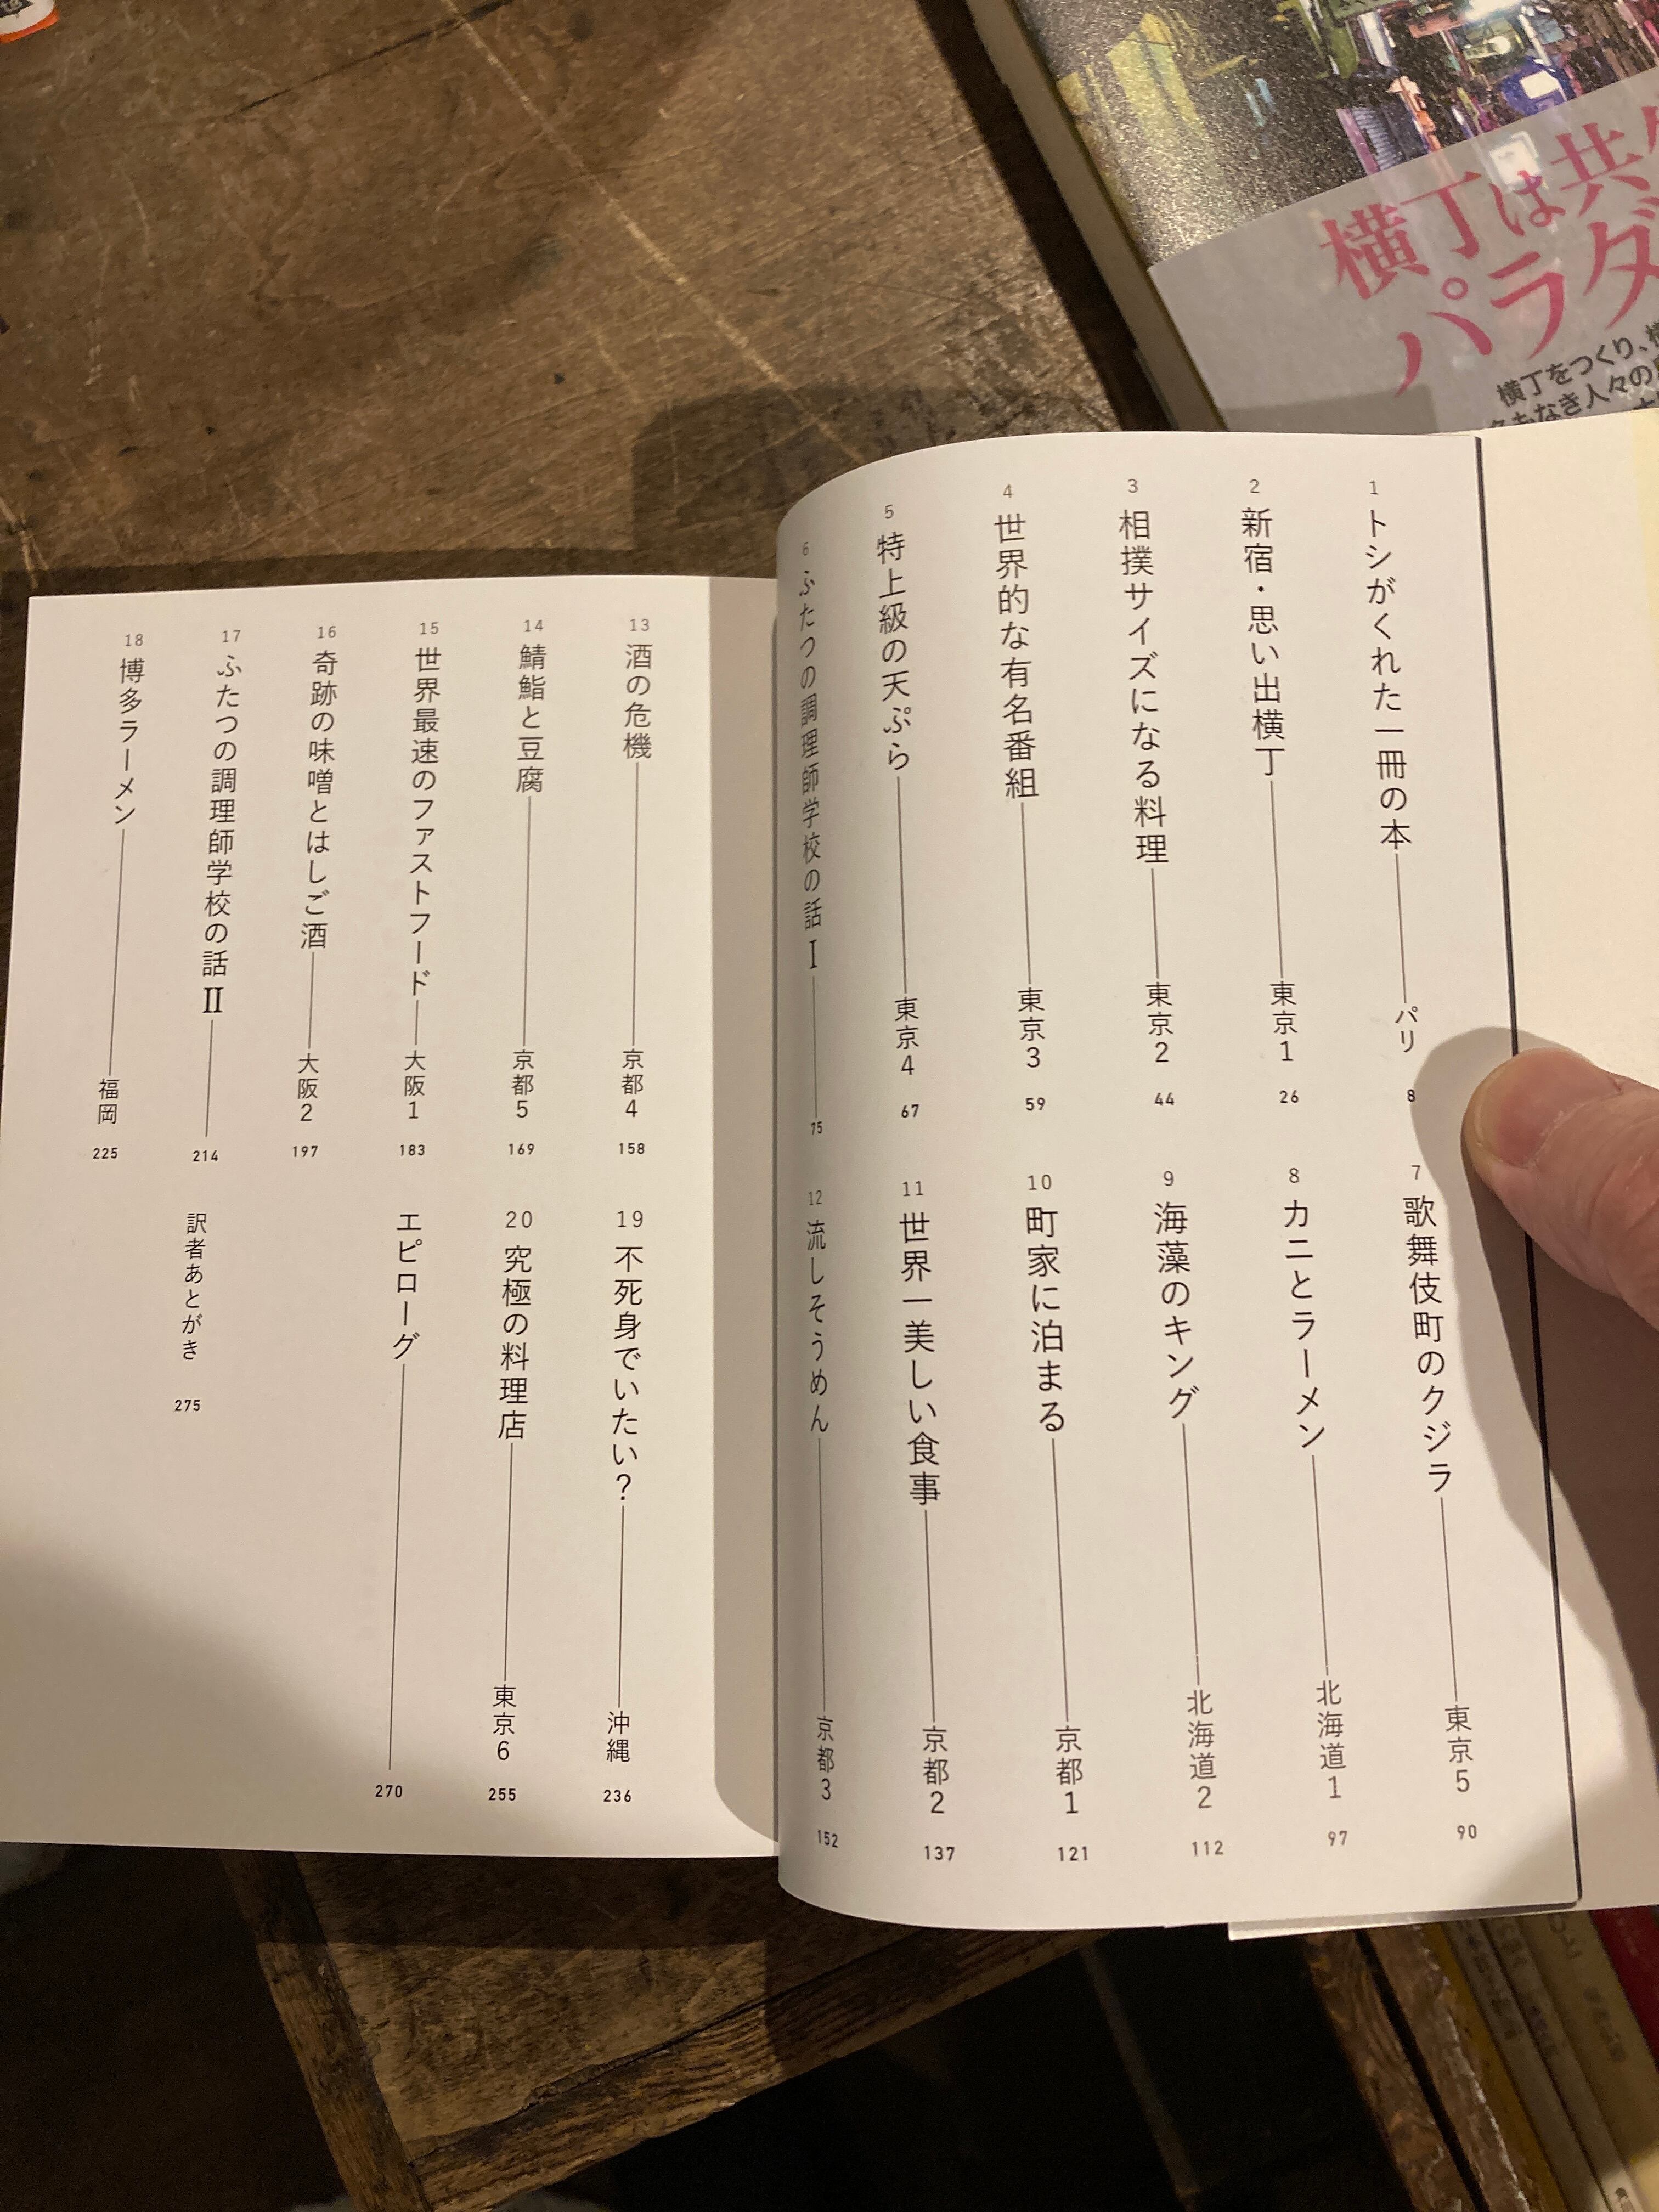 1 トシがくれた一冊の本 パリ 8
2 新宿・思い出横丁 東京1 26
3 相撲サイズになる料理 東京2 44
4 世界的な有名番組 東京3 59
5 特上級の天ぷら 東京4 67
6 ふたつの調理師学校の話 Ⅰ 75
7 歌舞伎町のクジラ 東京5 90
8 カニとラーメン 北海道1 97
9 海藻のキング 北海道2 112
10 町家に泊まる 京都1 121
11 世界一美しい食事 京都2 137
12 流しそうめん 京都3 152
13 酒の危機 京都4 158
14 鯖鮨と豆腐 京都5 169
15 世界最速のファストフード 大阪1 183
16 奇跡の味噌とはしご酒 大阪2 197
17 ふたつの調理師学校の話 Ⅱ 214
18 博多ラーメン 福岡 225
19 不死身でいたい? 沖縄 236
20 究極の料理店 東京6 255
エピローグ 270
訳者あとがき 275
横丁は共
パラダ
横丁をつくり、
なき人々の